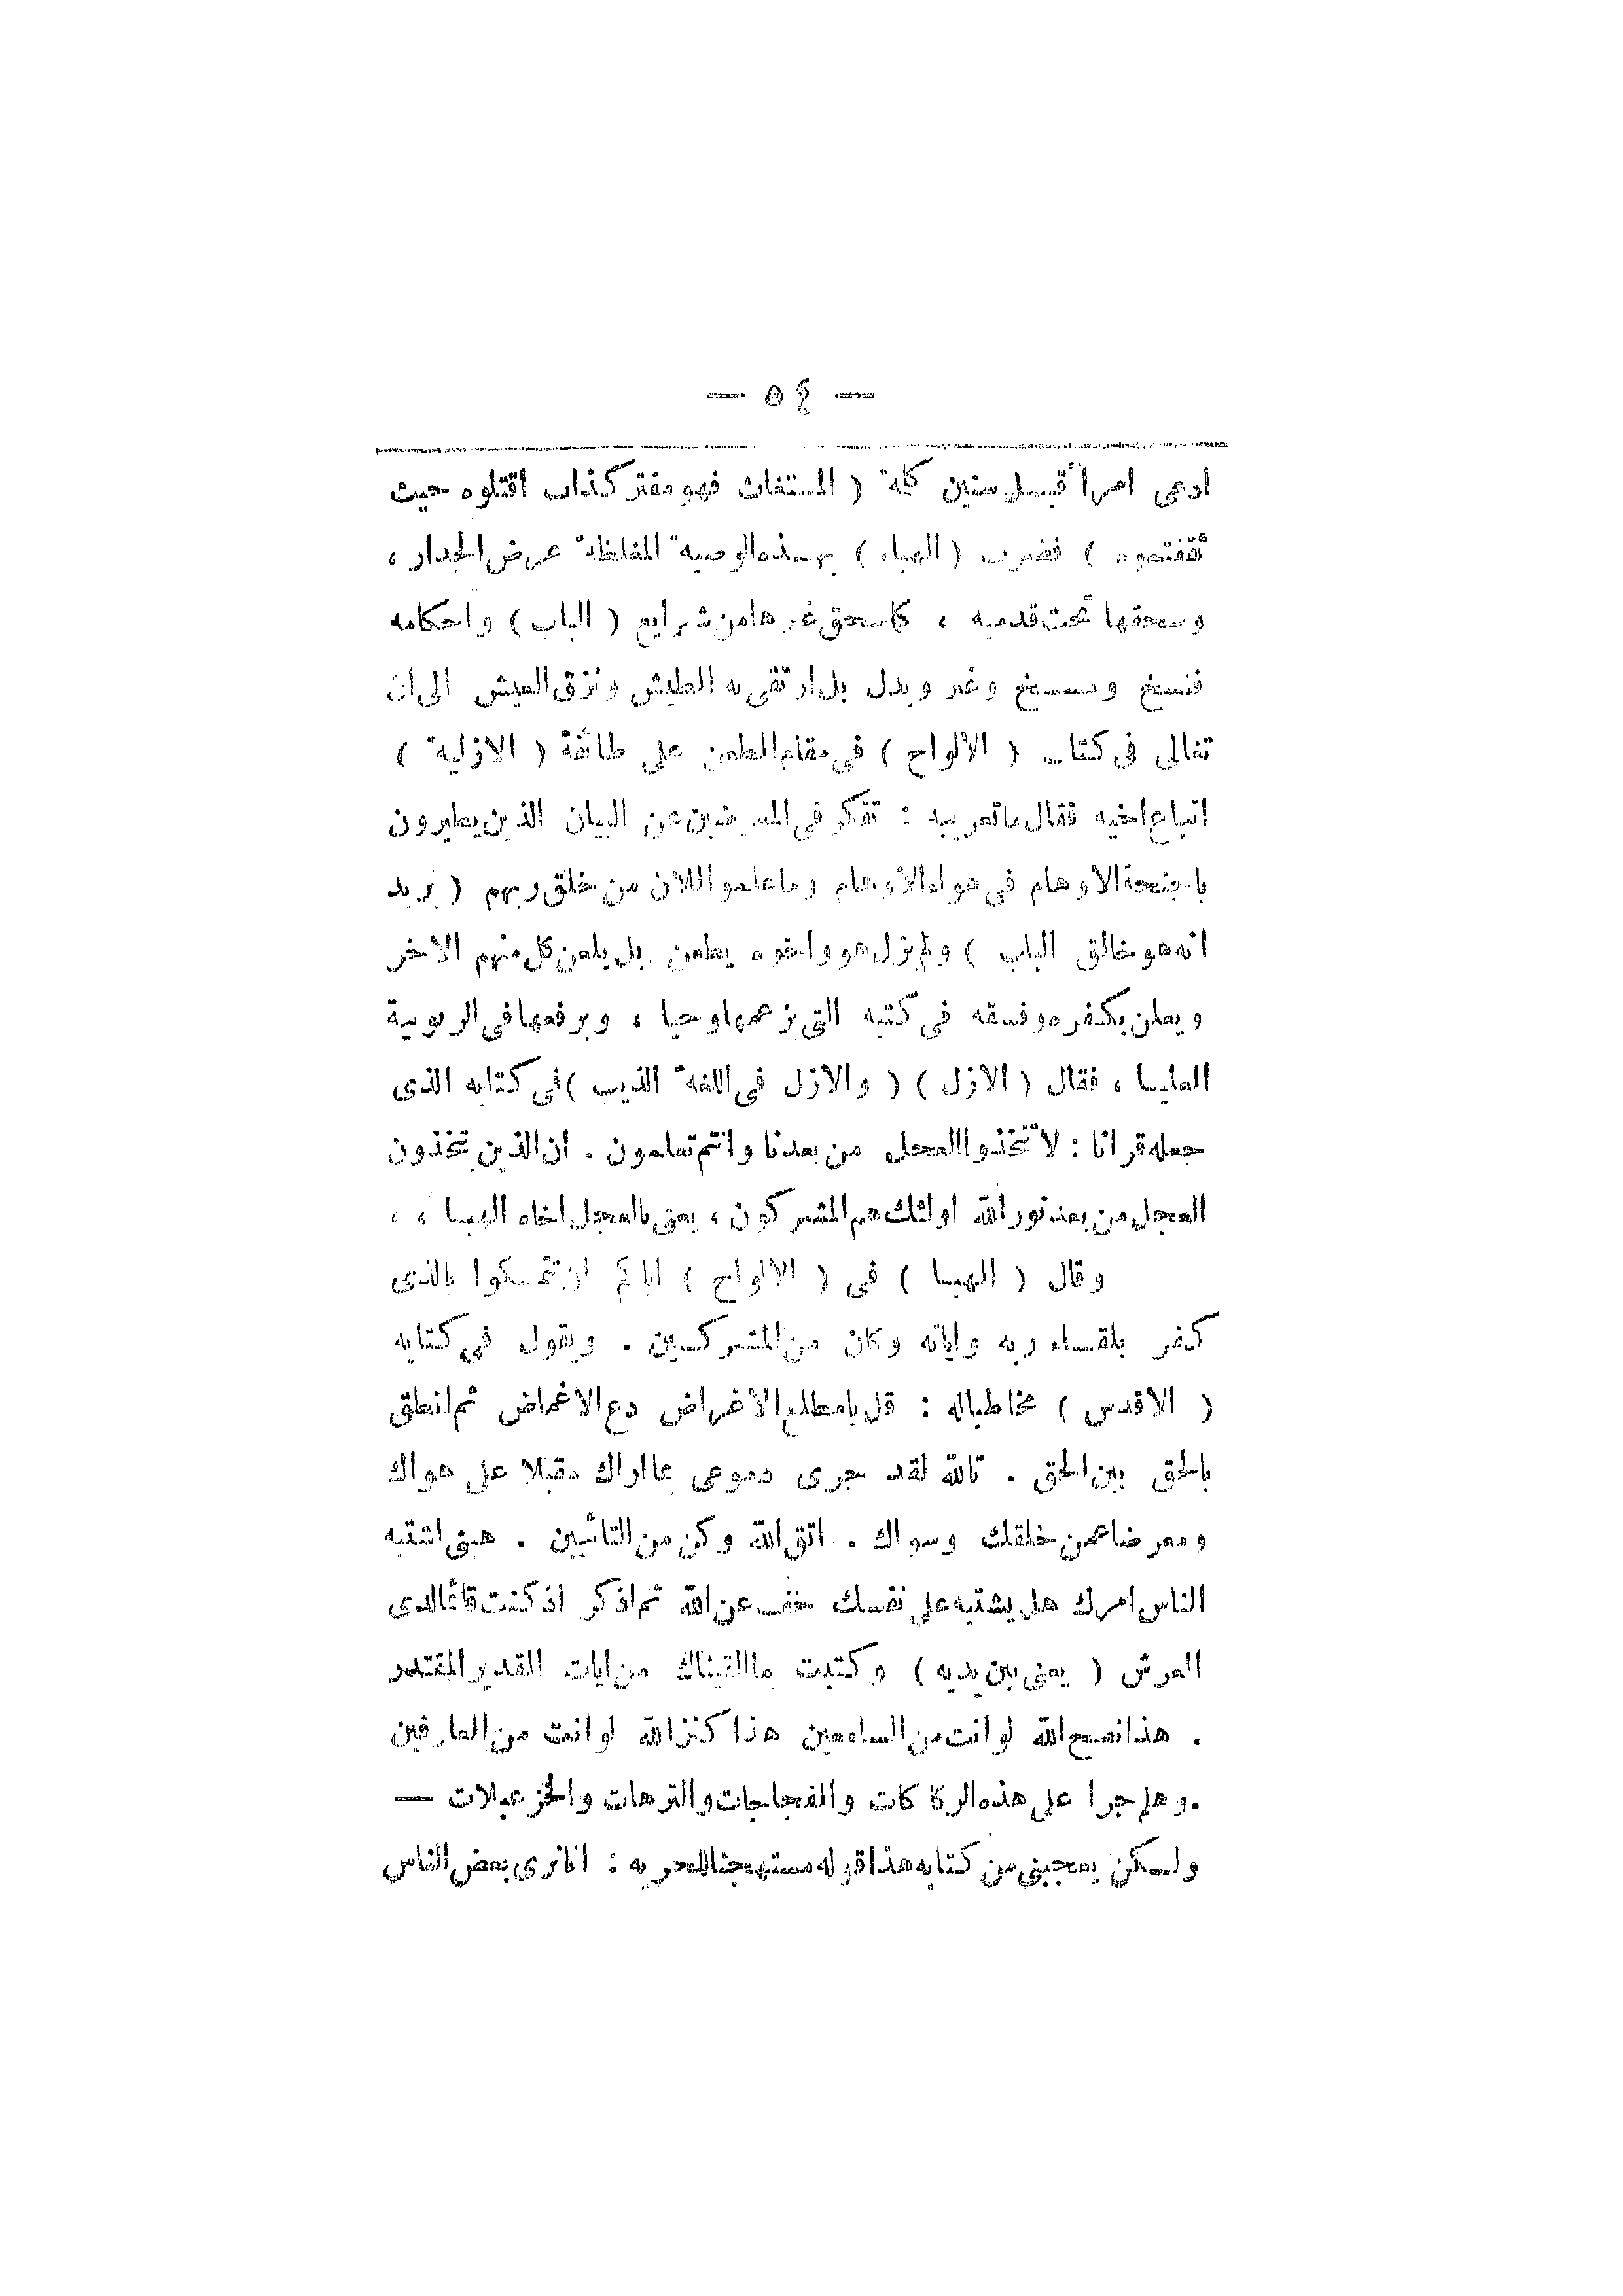 — ٥٤ —
ادعى امراً قبل سنين كلمة ( المستغاث فهو مفتر كذاب اقتلوه حيث
ثقفتموه ) فضرب ( البهاء ) بهذه الوصية المغلظة عرض الجدار ،
وسحقها تحت قدميه ، كما سحق غيرها من شرايع ( الباب ) واحكامه
فنسخ ومسخ وغير وبدل بل ارتقى به الطيش ونزق العيش الى ان
تغالى في كتاب ( الالواح ) في مقام الطعن على طائفة ( الازلية )
اتباع اخيه فقال ما تعريبه : تفكر في المعرضين عن البيان الذين يطيرون
باجنحة الاوهام في هواء الاوهام وما علموا للان من خلق ربهم ( يريد
انه هو خالق الباب ) ولم يزل هو واخوه يطعن بل يلعن كل منهم الاخر
ويعلن بكفره وفسقه في كتبه التي يزعمها وحيا ، ويرفعها في الربوبية
العليا ، فقال ( الازل ) ( والازل في اللغة الذيب ) في كتابه الذى
جعله قرانا : لا تتخذوا العجل من بعدنا وانتم تعلمون . ان الذين يتخذون
العجل من بعد نور الله اولئك هم المشركون ، يعني بالعجل اخاه البها ، ،
وقال ( البها ) في ( الالواح ) اياكم ان تمسكوا بالذى
كفر بلقاء ربه واياته وكان من المشركين . ويقول في كتابه
( الاقدس ) مخاطبا له : قل يا مطلع الاغراض دع الاغماض ثم انطق
بالحق بين الخق . تالله لقد جرى دموعى بما اراك مقبلا على هواك
ومعرضا عمن خلقك وسواك . اتق الله وكن من التائبين . هبنى اشتبه
الناس امرك هل يشتبه على نفسك خف عن الله ثم اذكر اذ كنت قائما لدى
العرش ( يعنى بين يديه ) وكتبت ما القيناك من ايات القدير المقتدر
. هذا نصح الله لو انت من السامعين هذا كنز الله لو انت من العارفين
. وهلم جرا على هذه الركاكات والفجاجات والترهات والخزعبلات —
ولكن يعجبنى من كتابه هذا قوله مستهجنا للحريه : انا نرى بعض الناس